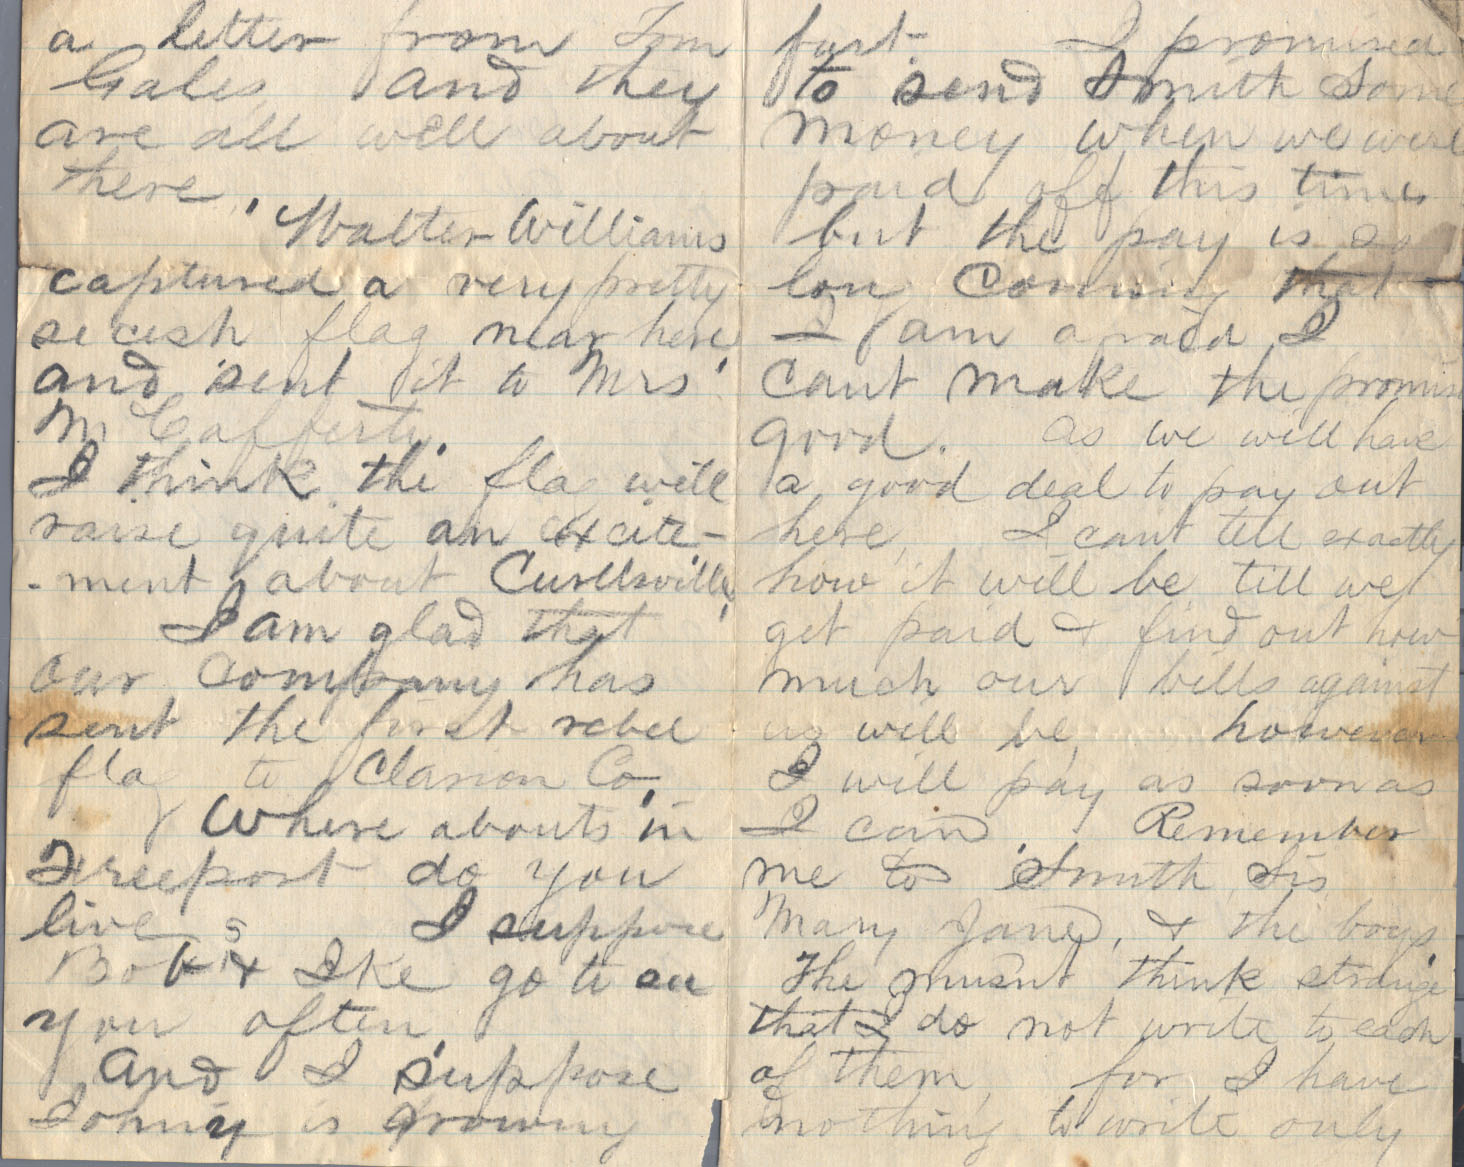 a letter from Tom
Gales, and they
are all well about
there.
Walter Williams
captured a very pretty
secesh flag near here
and sent it to Mrs
Mc Cafferty.
I think the flag will
raise quite an excite-
-ment about Curllsville,
I am glad that
our company has
sent the first rebel
flag to Clarion Co.
Where abouts in
Freeport do you
live I suppose
Bob & Ike go to see
you often
And I suppose
Johny is growing
fast. I promised
to send Smith Some
money when we were
paid off this time
but the pay is so
lon Coming that
I am afraid I
cant make the promise
good. as we will have
a good deal to pay out
here, I cant tell exactly
how it will be till we
get paid & find out how
much our bills against
us will be, however
I will pay as soon as
I can. Remember
me to Smith, Sis
Mary Jane, & the boys.
The musnt think strange
that I do not write to each
of them, for I have
nothing to write only